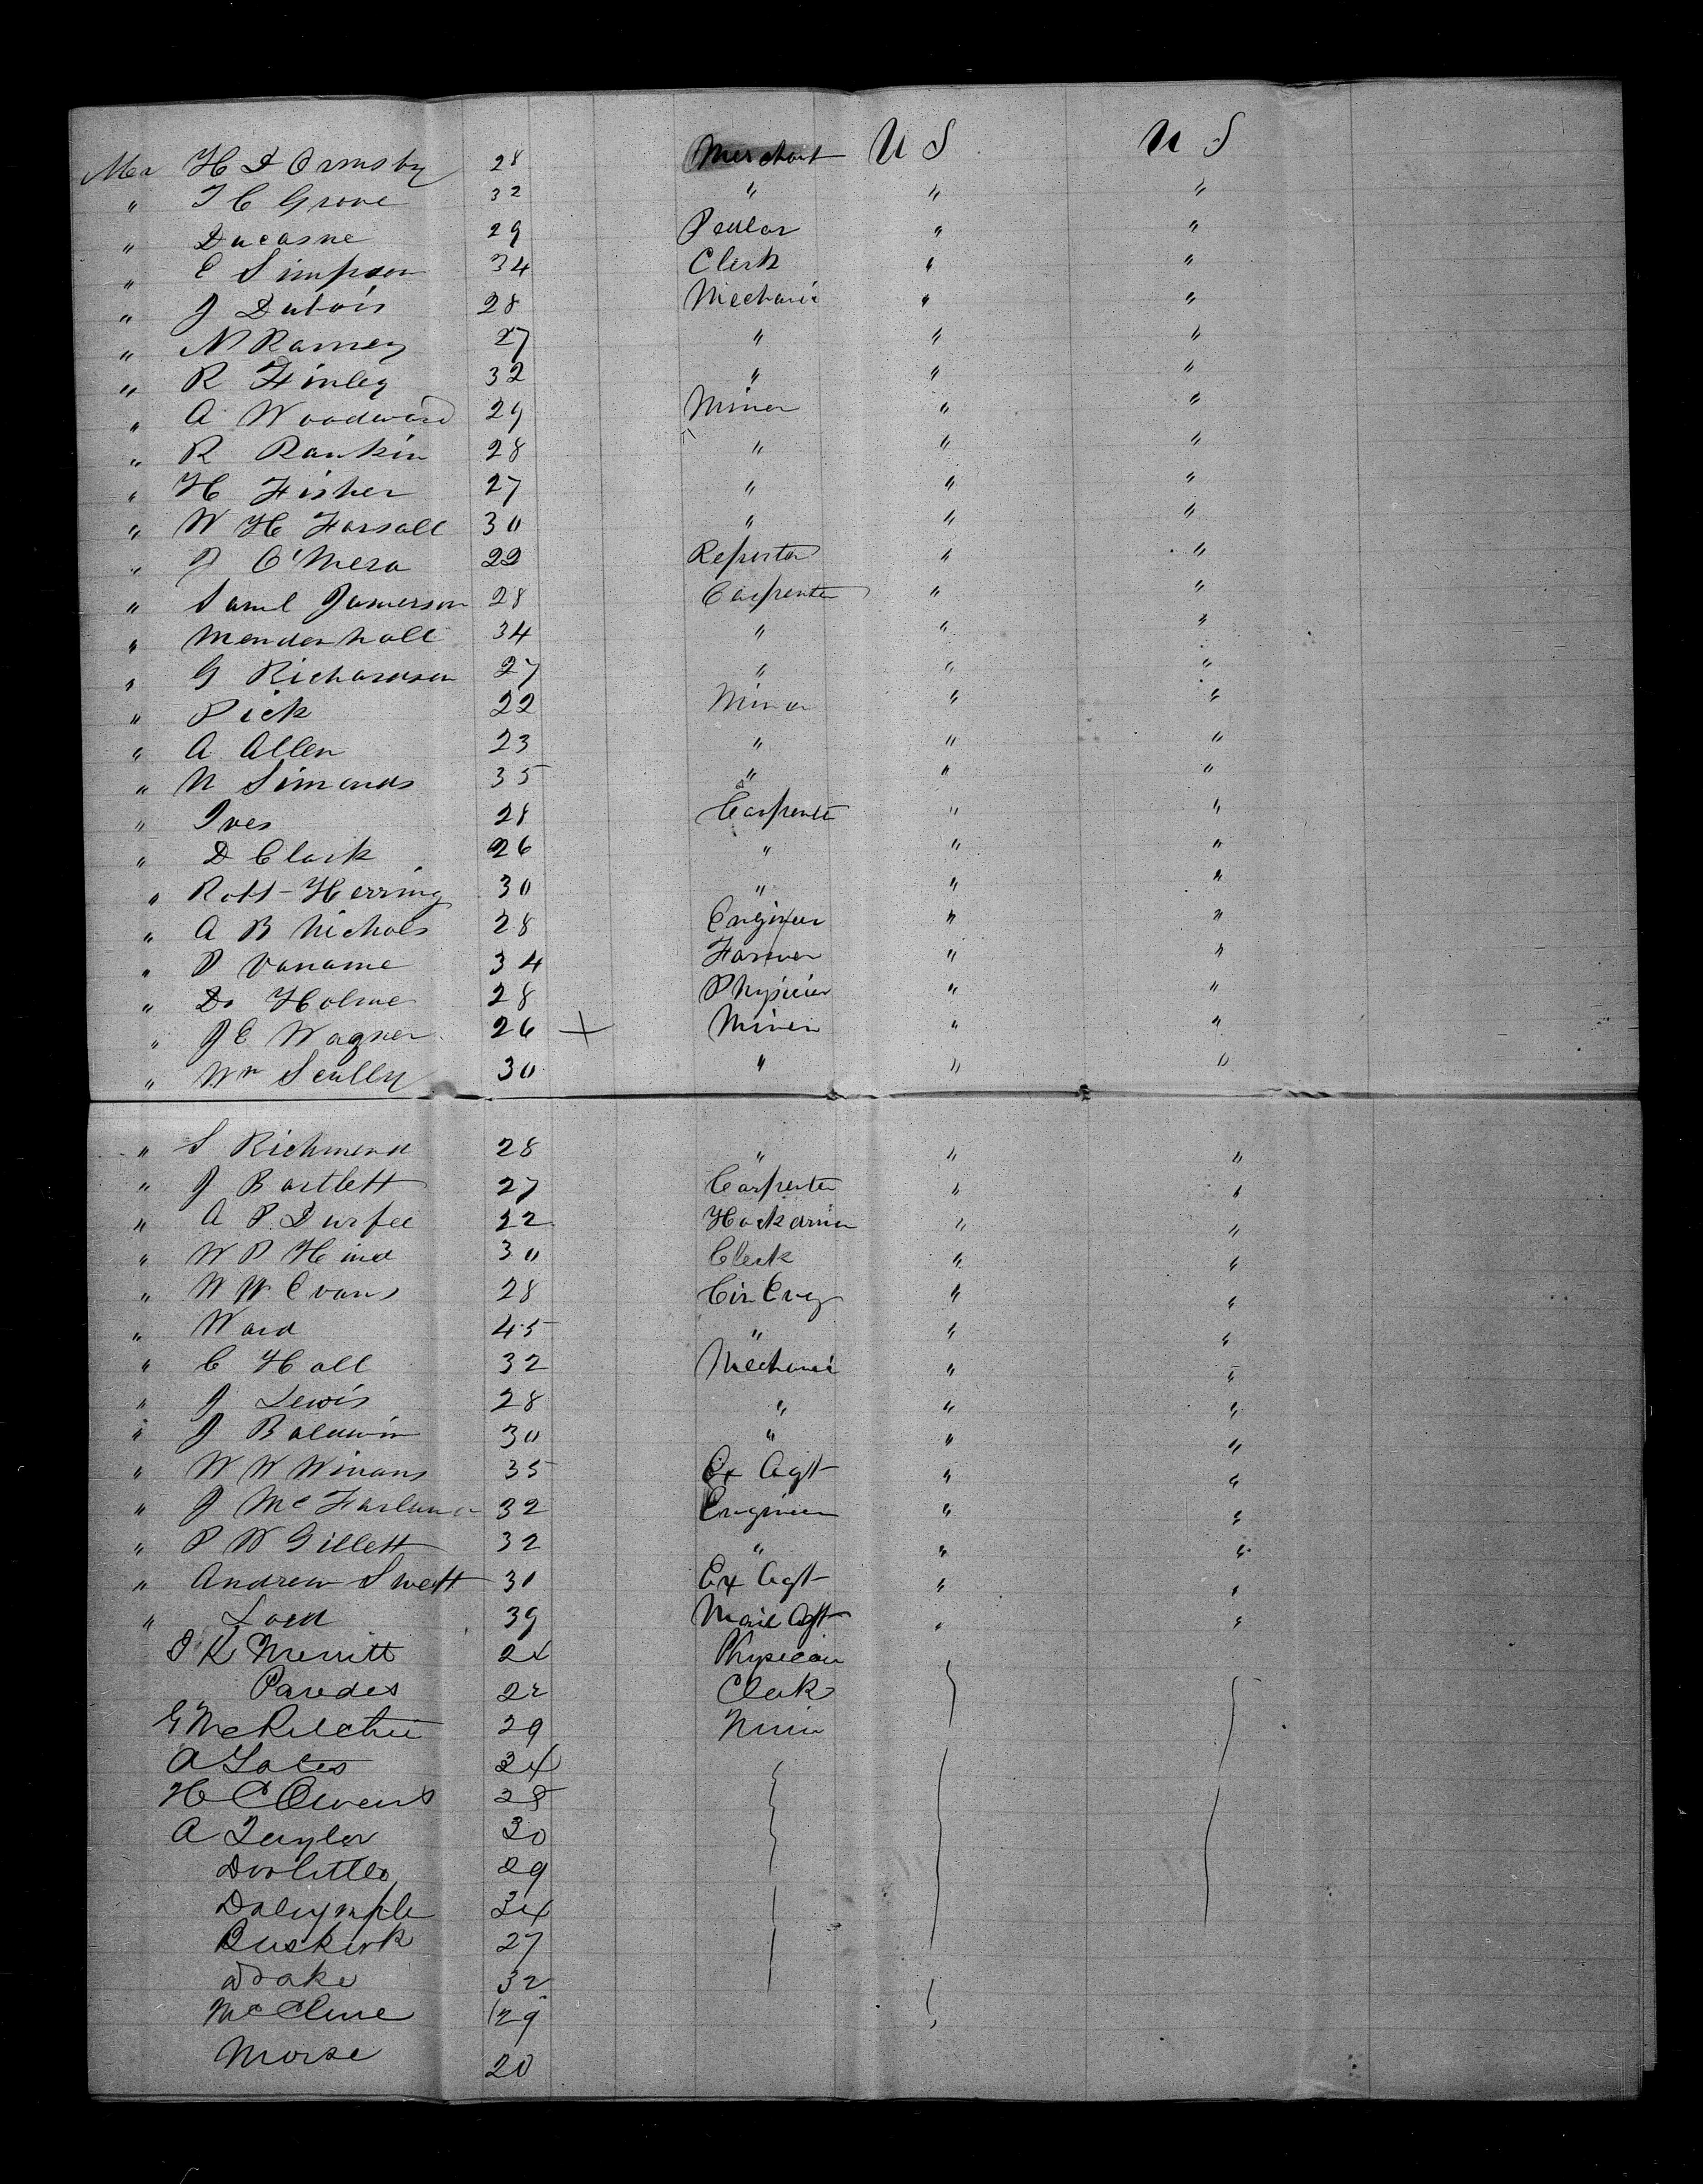 Mr H D Ormsby 28 Merchant U S U S
" T C Grove 32 " " "
" Ducasne 29 Pedlar " "
" E Simpson 34 Clerk " "
" J Dubois 28 Mechanic " "
" N Ramey 27 " " "
" R Finley 32 " " "
" A Woodward 29 Miner " "
" R Rankin 28 " " "
" H Fisher 27 " " "
" W H Farsall 30 " " "
" J O'Mera 22 Reporter " "
" Saml Jamerson 28 Carpenter " "
" Mendenhall 34 " " "
" G Richardson 27 " " "
" Pick 22 Miner " "
" A Allen 23 " " "
" N Simonds 35 " " "
" Ives 28 Carpenter " "
" D Clark 26 " " "
" Robt Herring 30 " " "
" A B Nichols 28 Engineer " "
" P Vaname 34 Farmer " "
" Dr Holme 28 Physician " "
" J E Wagner 26 + Miner " "
" Wm Scully 30 " " "
" S Richmond 28 " " "
" J Bartlett 27 Carpenter " "
" A P Durfee 22 Hackdriver " "
" W P Hind 30 Clerk " "
" W W Evans 28 Civ Eng " "
" Ward 45 " " "
" C Hall 32 Mechanic " "
" J Lewis 28 " " "
" J Baldwin 30 " " "
" W W Winans 35 Ex Agt " "
" J McFarland 32 Engineer " "
" P W Gillett 32 " " "
" Andrew Swett 30 Ex Agt " "
" Lord 39 Mail Agt " "
J K Merritt 24 Physician
Paredes 22 Clerk
G McRitchie 29 Miner
A Yates 24
H C Owens 28
A Taylor 30
Doolittle 29
Dalrymple 34
Buskirk 27
Drake 32
McClure 29
Morse 20